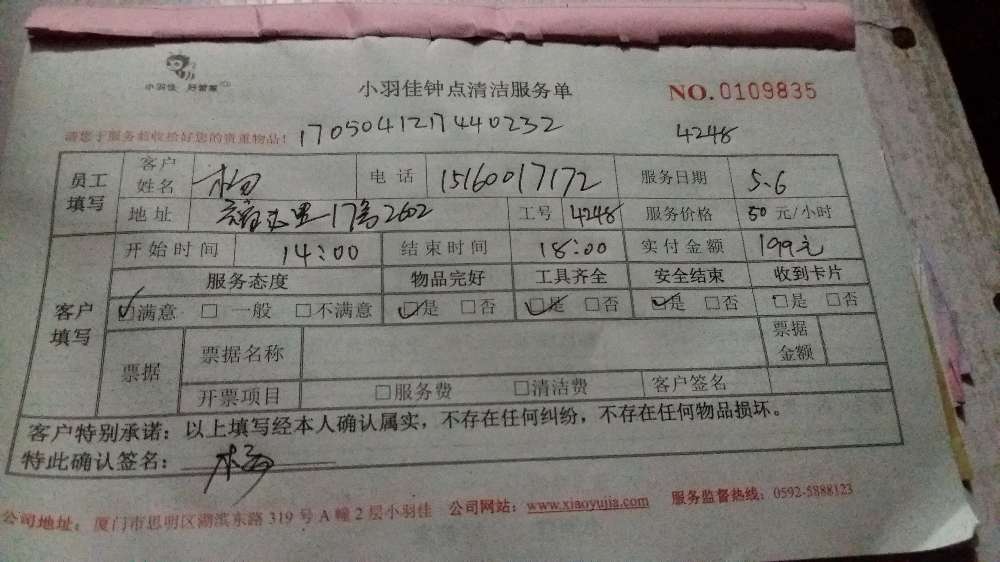 小羽佳 好管家
小羽佳钟点清洁服务单
NO. 0109835
请您于服务前收拾好您的贵重物品! 170504121744023​2
4248
员工填写 客户姓名 杨 电话 15160017172 服务日期 5.6
地址 里17号2602 工号 4248 服务价格 50 元/小时
客户填写 开始时间 14:00 结束时间 18:00 实付金额 199元
服务态度 物品完好 工具齐全 安全结束 收到卡片
☑满意 □一般 □不满意 ☑是 □否 ☑是 □否 ☑是 □否 □是 □否
票据 票据名称 票据金额
开票项目 □服务费 □清洁费 客户签名
客户特别承诺：以上填写经本人确认属实，不存在任何纠纷，不存在任何物品损坏。
特此确认签名： 杨
公司地址：厦门市思明区湖滨东路 319 号 A 幢 2 层小羽佳 公司网站：www.xiaoyujia.com 服务监督热线：0592-5888123